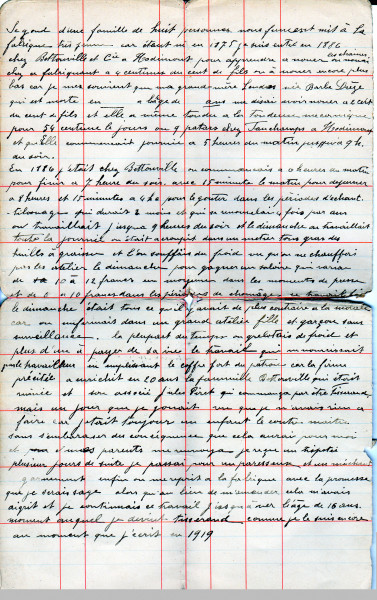 Second d'une famille de huit personnes nous fument mit à la
fabrique très jeune car étant né en 1875 je suis entré en 1886
les chaînes
chez Bettonville et Cie à Hodimont pour apprendre à nouer on nouais
chez en fabriquant à 4 centimes du cent de fils ou à nouer encore plus
bas car je me souviens que ma grand mère née Barbe Drèze
qui est morte en à l'âge de ans me disait avoir nouer à 1 cent
du cent de fils et elle a même tondu à la tondeuse mécanique
pour 54 centime le jours ou 9 patars chez à Hodimont
et qu'Elle commencait journée à 5 heures du matin jusqu'a 9 h.
du soir.
En 1886 j'étoit chez Bettonville on commencais à 6 heures du matin
pour finir à 7 heure du soir. avec 15 minutes le matin pour dejeuner
à 8 heures et 15 minutes à 4 h pour le goûter dans les périodes d'échant-
tilonage qui durait 2 mois et qui se renouvelait fois par ans
on travaillait jusqu'a 9 heures du soir et le dimanche on travaillais
toute la journée on était accroupit dans un métier tous gras des
huilles à graisser et l'on souffrais du froid vu qu'on ne chauffais
pas les atelier le dimanche pour gagner un salaire qui varia
de 10 à 12 francs en moyenne dans les moments de presse
et de 6 à 10 francs dans les périodes de chomage ce travail
le dimanche était tous ce qu'il y avait de plus contraire à la morale
car on enfermais dans un grand atelier fille et garçon sans
surveillance la plupart du temps on grelotais de froid et
plus d'un a payer de sa vie le travail qui nourrissait
le travailleur en emplissant le coffre fort du patron car la firme
précitée a enrichit en 20 ans la famille Bettonville qui était
ruinée et son associé Jules Piret qui commença par être
mais un jour que je jouait vu que je n'avais rien à
faire car j'étoit toujour un enfant le contre maitre
sans s'embaraser des conséquences que cela aurait pour moi
et pour mes parents me renvoya je reçut un
plusieur jours de suite je passait pour un paresseux et un méchant
garnement enfin on me reprit à la fabrique avec la promesse
que je serais sage alors qu'au lieu de m'amender cela m'avait
aigrit et je continuais ce travail jusqu'a mer l'âge de 16 ans.
moment auquel je devint tisserand comme je le suis encore
au moment que j'écrit en 1919